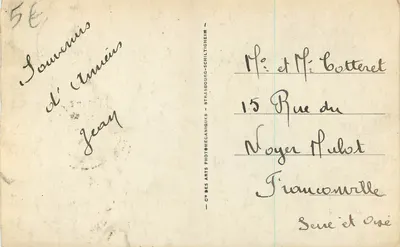 5€
Souvenirs
d'Amiens
Jean
Cie DES ARTS PHOTOMÉCANIQUES - STRASBOURG-SCHILTIGHEIM -
Mr et Me Cotteret
15 Rue du
Noyer Mulot
Franconville
Seine et Oise